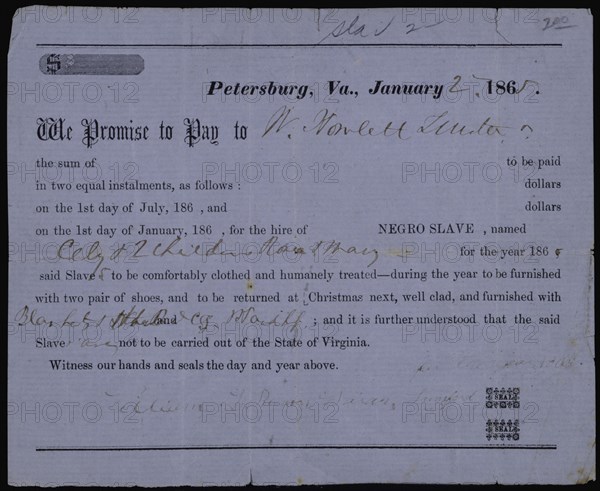 $
Petersburg, Va., January 2 186 .
We Promise to Pay to W. Howlett
the sum of to be paid
in two equal instalments, as follows : dollars
on the 1st day of July, 186 , and dollars
on the 1st day of January, 186 , for the hire of NEGRO SLAVE , named
Cely & 2 Children for the year 186
said Slaves to be comfortably clothed and humanely treated—during the year to be furnished
with two pair of shoes, and to be returned at Christmas next, well clad, and furnished with
Blanket and ; and it is further understood that the said
Slave are not to be carried out of the State of Virginia.
Witness our hands and seals the day and year above.
SEAL
SEAL